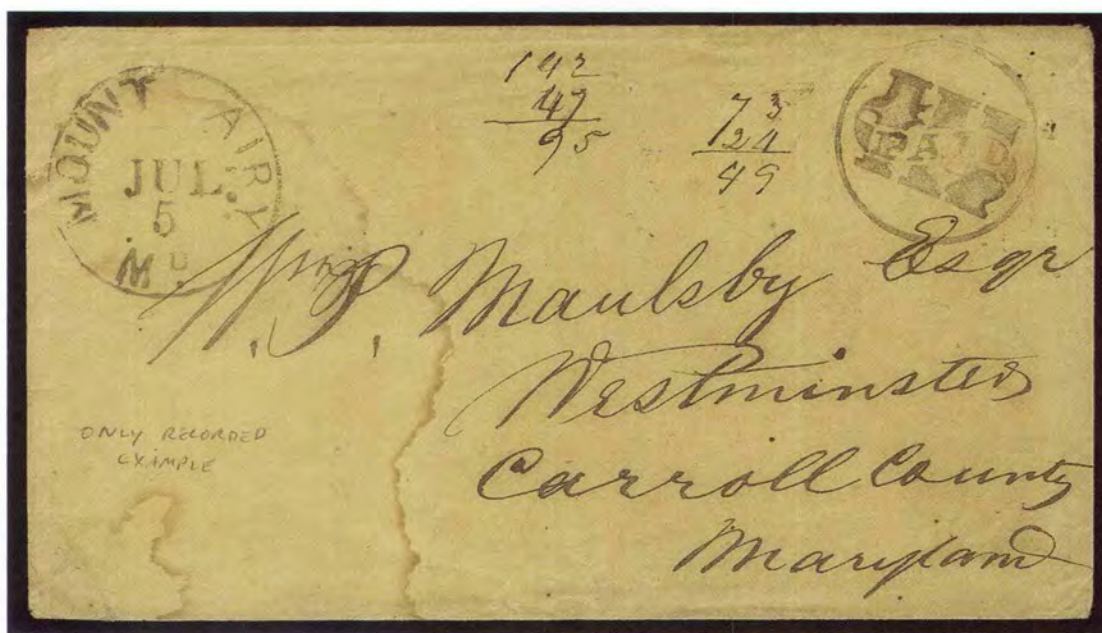 MOUNT AIRY
JUL.
5
MD.
142
47
95
73
24
49
PAID
Maulsby Esqr
Westminster
Carroll County
Maryland
ONLY RECORDED
EXAMPLE